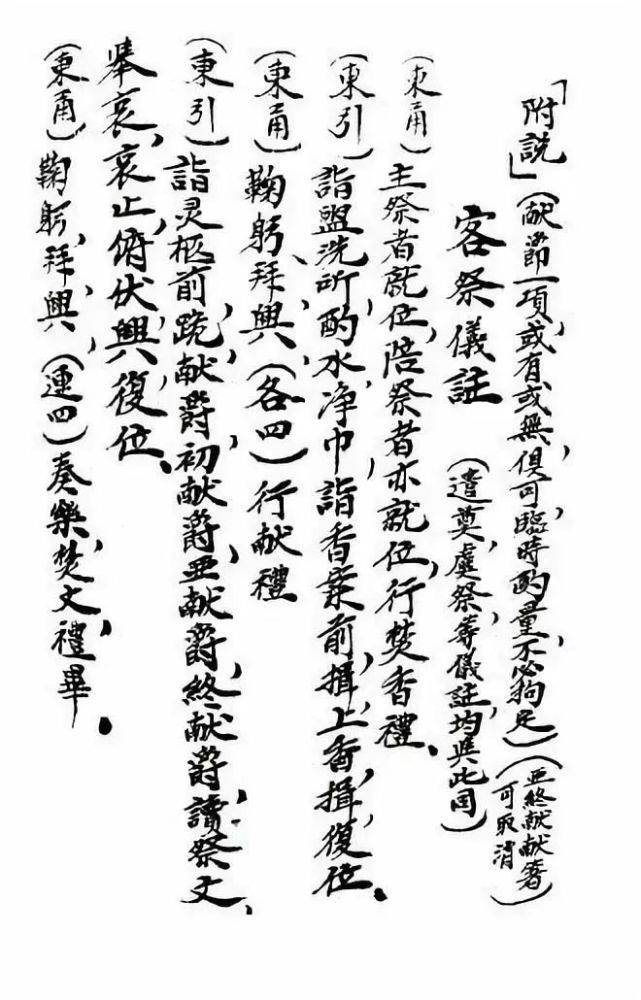 「附説」(献節一項，或有或無，俱可臨時酌量，不必拘定)(亚終献献箸可取消)
客祭儀註(遣奠，虞祭，等儀註，均與此同)
(東甬)主祭者就位，陪祭者亦就位，行焚香禮。
(東引)詣盥洗所，酌水，净巾，詣香案前，揖，上香，揖，復位。
(東甬)鞠躬，拜，興，(各四)行献禮
(東引)詣灵柩前，跪，献爵，初献爵，亚献爵，終献爵，讀祭文，
舉哀，哀止，俯伏，興，復位。
(東甬)鞠躬，拜，興，(連四)奏樂，焚文，禮畢。